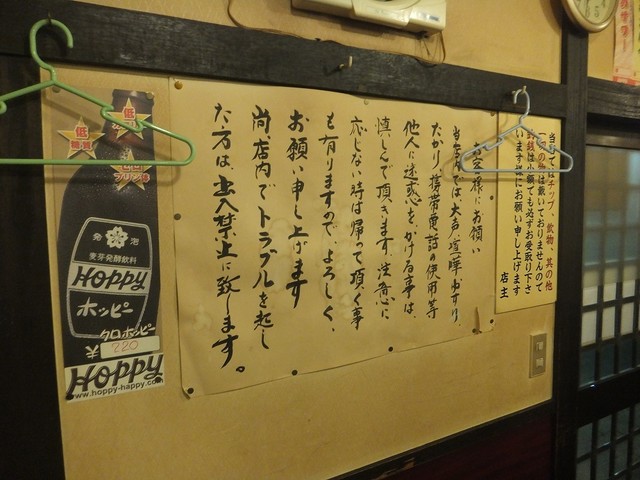 お客様にお願い
当店では大声、喧嘩、ゆすり、
たかり、携帯電話の使用等
他人に迷惑をかける事は、
慎しんで頂きます、注意心に
応じない時は帰って頂く事
も有りますので、よろしく、
お願い申し上げます
尚、店内でトラブルを起し
た方は、出入禁止に致します。
当店ではチップ、飲物、其の他
は戴いておりませんので
は小額でも必ずお受取り下さ
います様にお願い申し上げます
店主
低
低糖質
プリン体
発泡
麦芽発酵飲料
Hoppy
ホッピー
クロホッピー
¥220
Hoppy
www.hoppy-happy.com